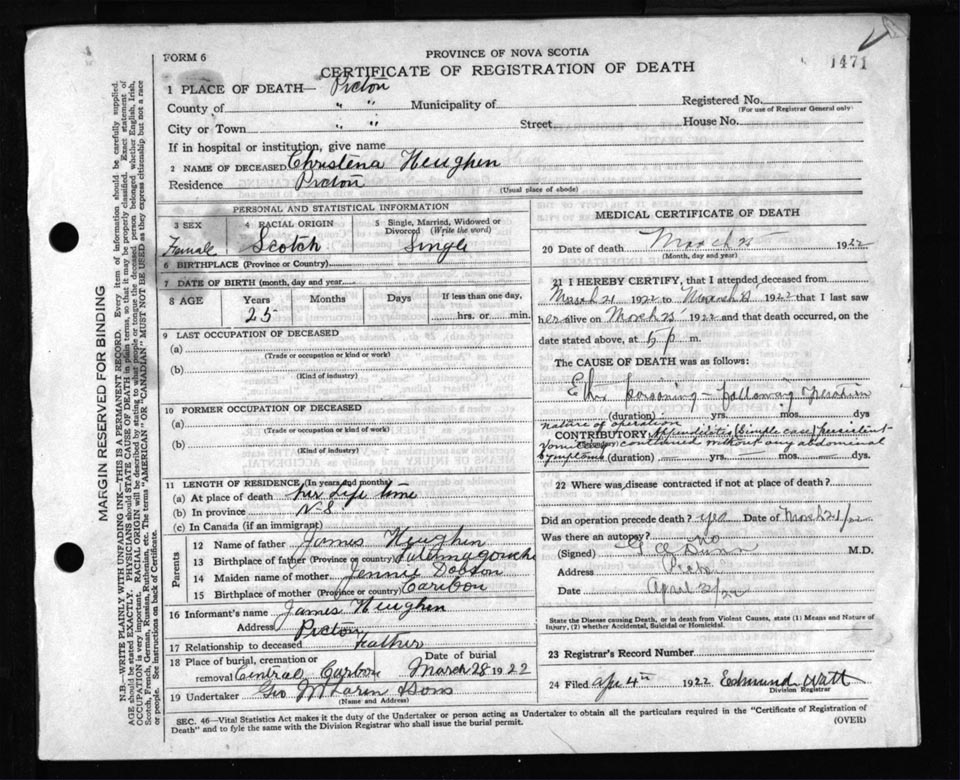 FORM 6
PROVINCE OF NOVA SCOTIA
CERTIFICATE OF REGISTRATION OF DEATH
1471
1 PLACE OF DEATH— Pictou
County of " " Municipality of
Registered No.
(For use of Registrar General only)
City or Town " " Street House No.
If in hospital or institution, give name
2 NAME OF DECEASED Christena Heughin
Residence Pictou
(Usual place of abode)
PERSONAL AND STATISTICAL INFORMATION
3 SEX
Female
4 RACIAL ORIGIN
Scotch
5 Single, Married, Widowed or Divorced (Write the word)
Single
6 BIRTHPLACE (Province or Country)
7 DATE OF BIRTH (month, day and year
8 AGE
Years Months Days
25
If less than one day,
hrs. or min.
9 LAST OCCUPATION OF DECEASED
(a)
(Trade or occupation or kind of work)
(b)
(Kind of industry)
10 FORMER OCCUPATION OF DECEASED
(a)
(Trade or occupation or kind of work)
(b)
(Kind of industry)
11 LENGTH OF RESIDENCE (In years and months)
(a) At place of death her life time
(b) In province N-S
(c) In Canada (if an immigrant)
Parents
12 Name of father James Heughin
13 Birthplace of father (Province or country) Tatamagouche
14 Maiden name of mother Jennie Dobson
15 Birthplace of mother (Province or country) Caribou
16 Informant's name James Heughin
Address Pictou
17 Relationship to deceased Father
18 Place of burial, cremation or removal Central Caribou
Date of burial March 28 1922
19 Undertaker Geo McLaren & Sons
(Name and Address)
MEDICAL CERTIFICATE OF DEATH
20 Date of death March 25 1922
(Month, day and year)
21 I HEREBY CERTIFY, that I attended deceased from
March 21 1922 to March 1922 that I last saw
her alive on March 25 1922 and that death occurred, on
the date stated above, at 5 p m.
The CAUSE OF DEATH was as follows:
Ether Poisoning — following operation
(duration) yrs. mos. dys
nature of operation
CONTRIBUTORY Appendicitis (simple case) persistent
vomiting continued without any abdominal
symptoms (duration) — yrs. — mos. — dys.
22 Where was disease contracted if not at place of death?
Did an operation precede death? yes Date of March 21/22
Was there an autopsy? no
(Signed) Dunn M.D.
Address Pictou
Date April 3/22
State the Disease causing Death, or in death from Violent Causes, state (1) Means and Nature of
Injury, (2) whether Accidental, Suicidal or Homicidal.
23 Registrar's Record Number
24 Filed Apr 4th 1922 Edmund Watt
Division Registrar
SEC. 46—Vital Statistics Act makes it the duty of the Undertaker or person acting as Undertaker to obtain all the particulars required in the "Certificate of Registration of
Death" and to fyle the same with the Division Registrar who shall issue the burial permit.
(OVER)
MARGIN RESERVED FOR BINDING
N.B.—WRITE PLAINLY WITH UNFADING INK—THIS IS A PERMANENT RECORD. Every item of information should be carefully supplied.
AGE should be stated EXACTLY. PHYSICIANS should STATE CAUSE OF DEATH in plain terms, so that it may be properly classified. Exact statement of
OCCUPATION is very important. RACIAL ORIGIN will be described by stating to what people or tongue the deceased person belonged whether English, Irish,
Scotch, French, German, Russian, Ruthenian, etc. The terms "AMERICAN" OR "CANADIAN" MUST NOT BE USED as they express citizenship but not a race
or people. See instructions on back of Certificate.